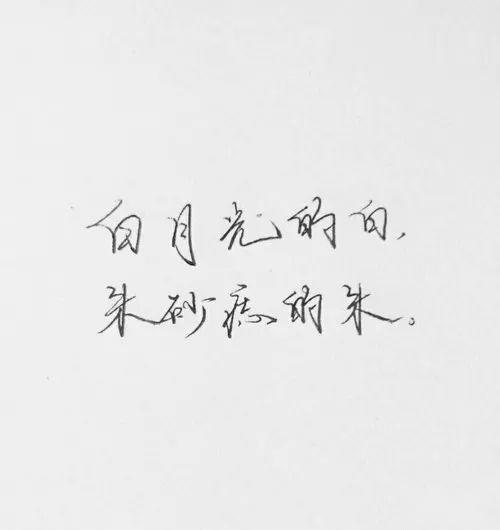 白月光的白，
朱砂痣的朱。